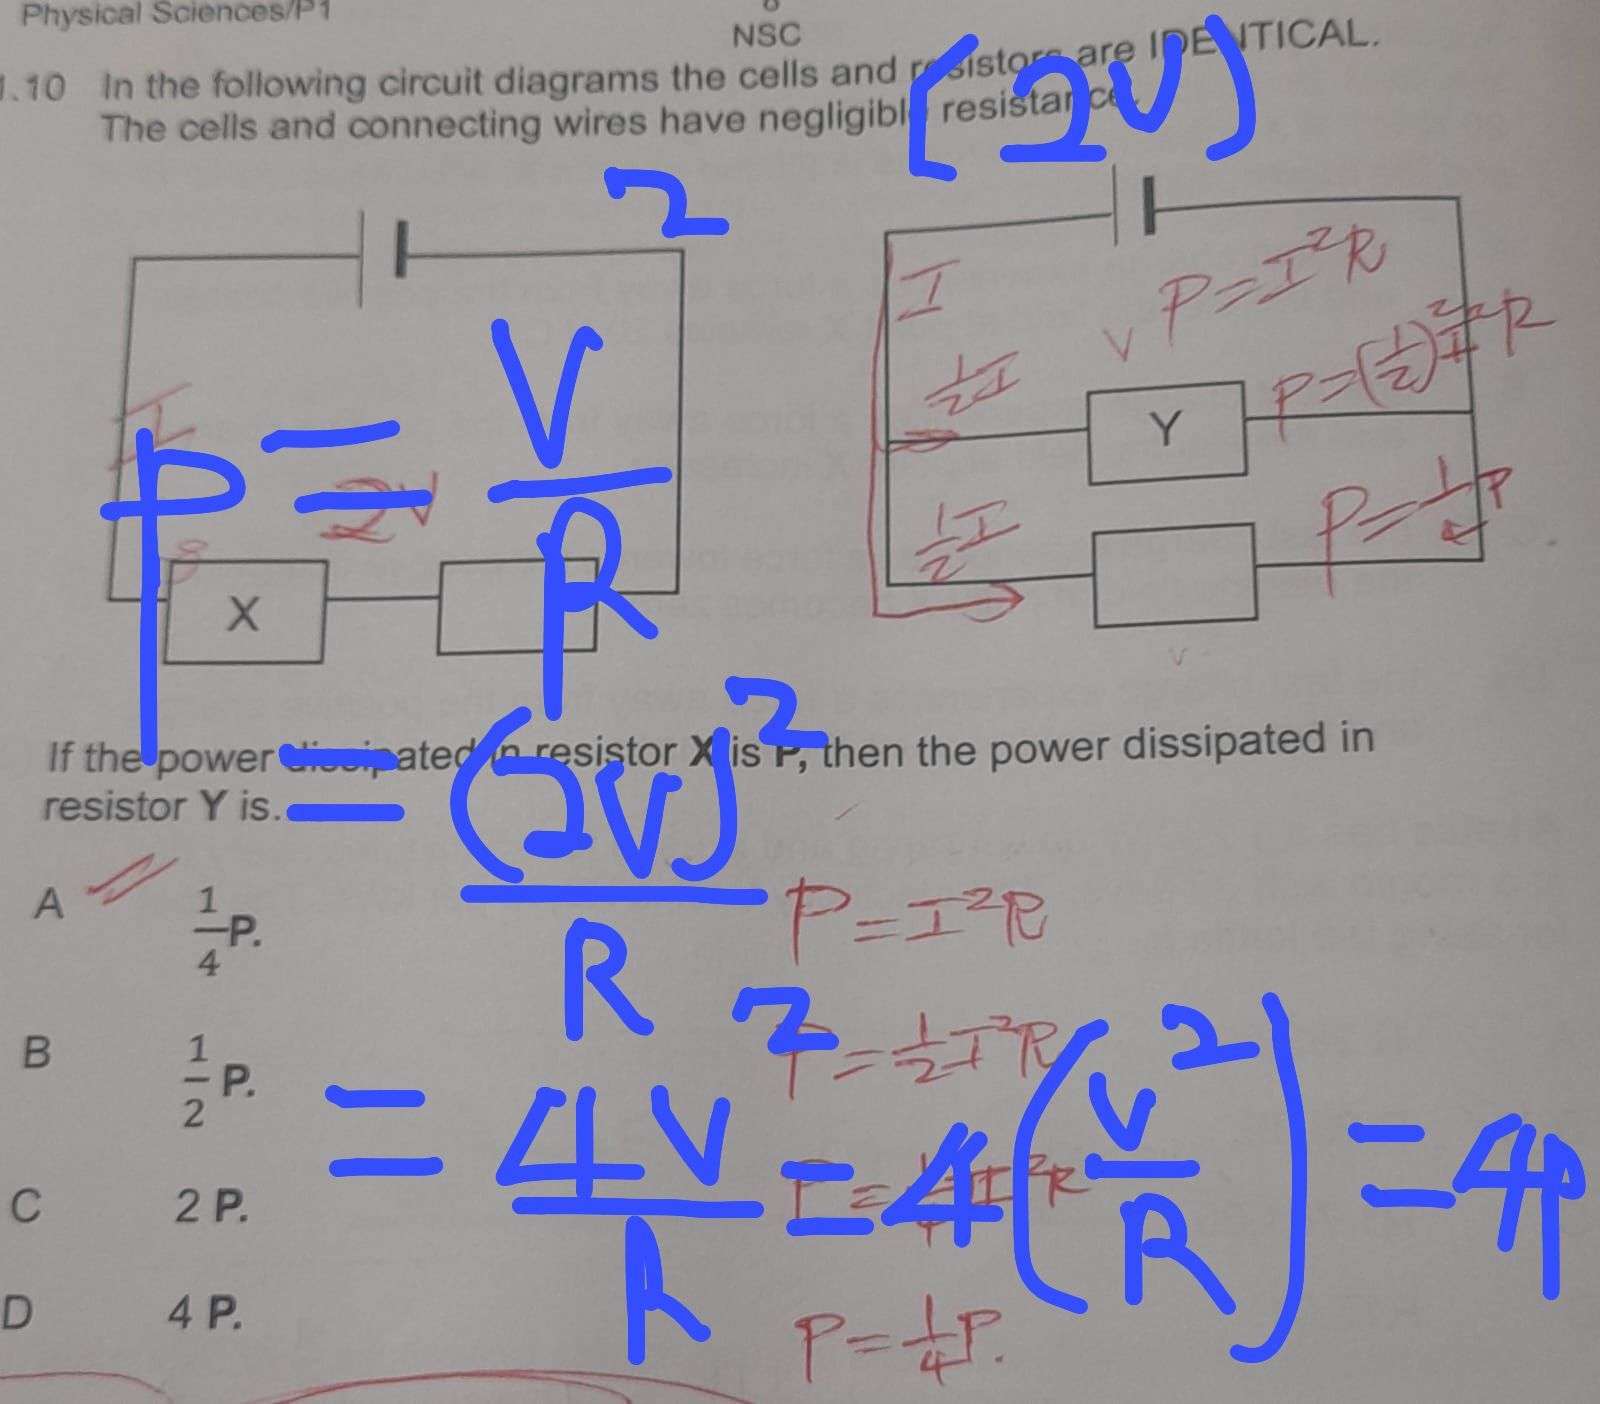 Physical Sciences/P1
8
NSC
1.10 In the following circuit diagrams the cells and resistors are IDENTICAL.
The cells and connecting wires have negligible resistance.
(2V)
2
P = V/R
I
2V
8
X
I
P=I²R
V
½I
P=(½)²I²R
Y
½I
P=¼P
V
If the power dissipated in resistor X is P, then the power dissipated in
resistor Y is.
= (2V)²/R
A 1/4 P.
P=I²R
B 1/2 P.
P=½I²R
= 4V²/R = 4(V²/R) = 4P
C 2 P.
D 4 P.
P=¼P.